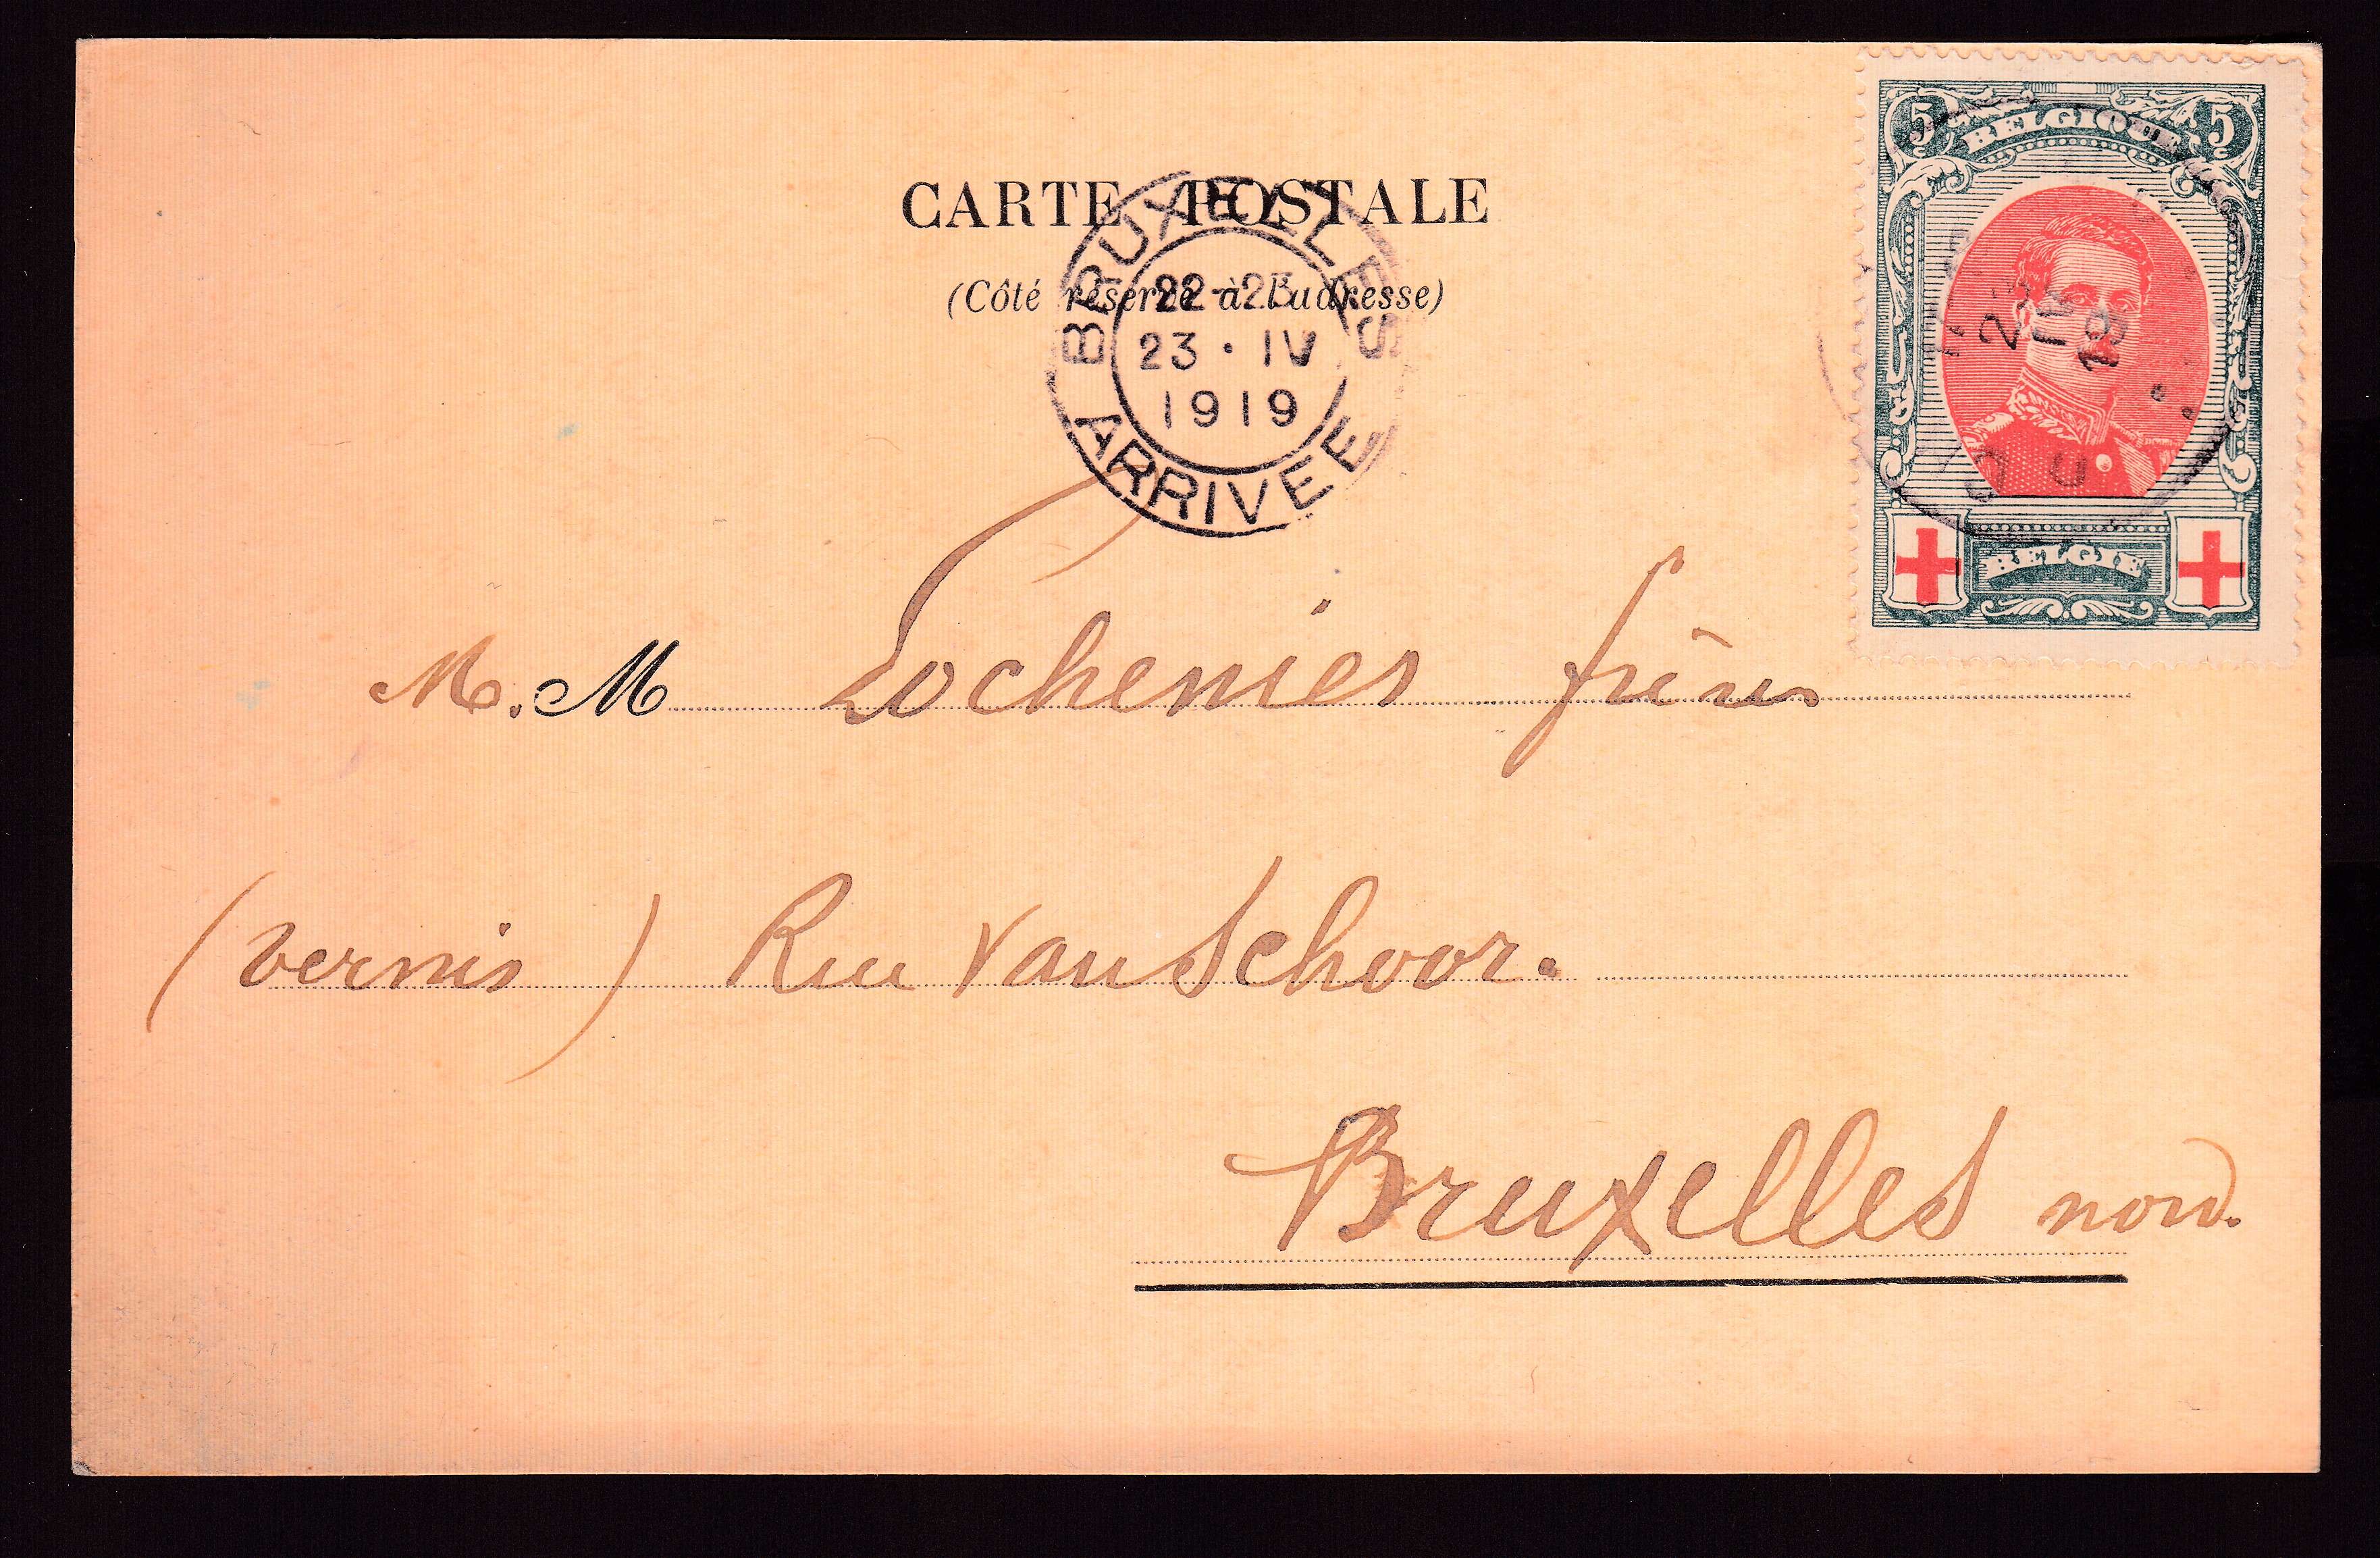 CARTE POSTALE
(Côté réservé à l'adresse)
BRUXELLES
22-23
23 · IV
1919
ARRIVEE
5c BELGIQUE 5c
23
IV
19
BELGIË
M. M Lochenies frères
(vernis) Rue Van Schoor.
Bruxelles nord.